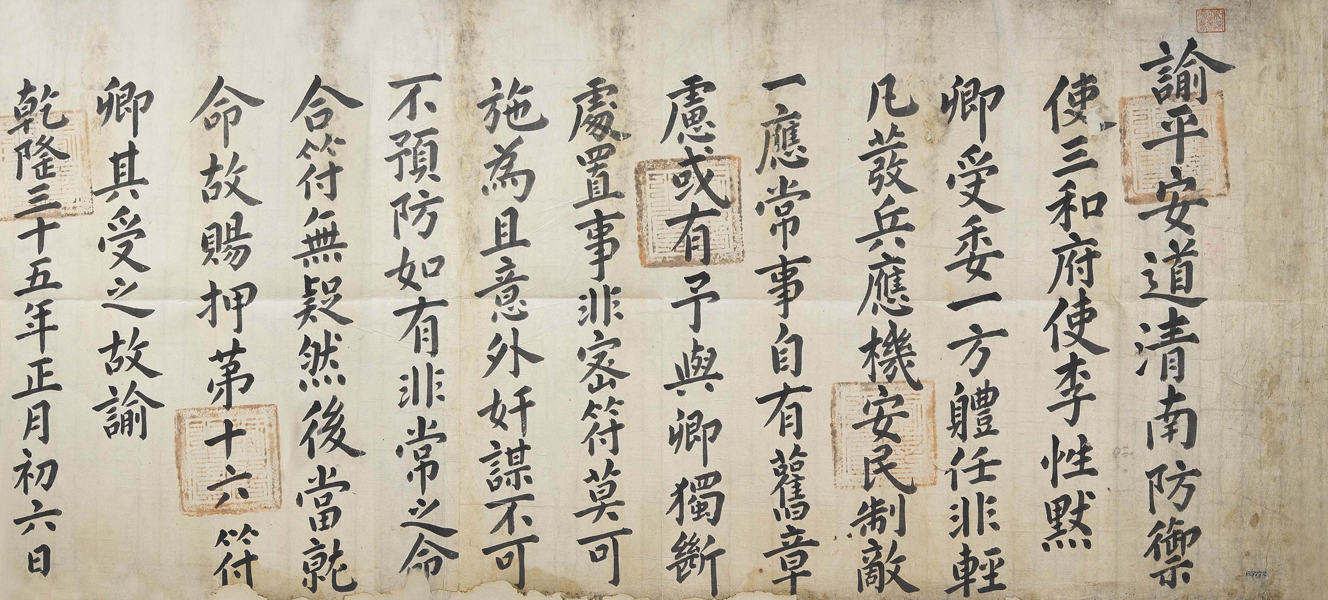 諭平安道清南防御
使三和府使李性默
卿受委一方體任非輕
凡發兵應機安民制敵
一應常事自有舊章
慮或有予與卿獨斷
處置事非密符莫可
施為且意外奸謀不可
不預防如有非常之命
合符無疑然後當就
命故賜押第十六符
卿其受之故諭
乾隆三十五年正月初六日